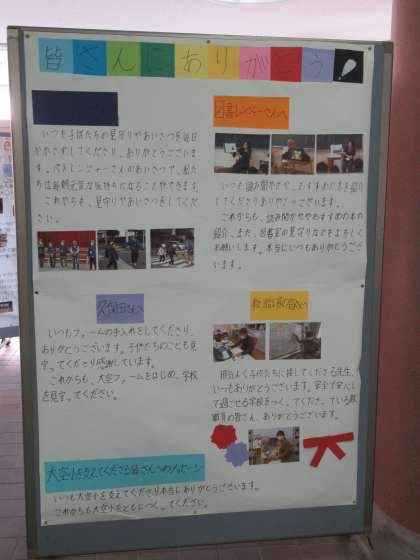 皆さんにありがとう!
いつも子供たちの見守りやあいさつを毎日
かかさずしてくださり、ありがとうございま
す。パトレンジャーさんのあいさつで、私た
ちは毎朝元気な気持ちになることができます。
これからも、見守りやあいさつをしてくださ
い。
図書レンジャーさんへ
いつも読み聞かせや、おすすめの本を紹介
してくださりありがとうございます。
これからも、読み聞かせやおすすめの本の
紹介、また、図書室の見守りなどをよろしく
お願いします。本当にいつもありがとうござ
います。
久保田さんへ
いつもファームの手入れをしてくださり、
ありがとうございます。子供たちのことも見
守ってくださり感謝しています。
これからも、大空ファームをはじめ、学校
を見守ってください。
いつもありがとうございます。安全で安心し
て過ごせる学校をつくってくださっている教
職員の皆さん、ありがとうございます。
大空小を支えてくださる皆さんへのメッセージ
いつも大空小を支えてくださり本当にありがとうございます。
これからも大空小をともにつくってください。